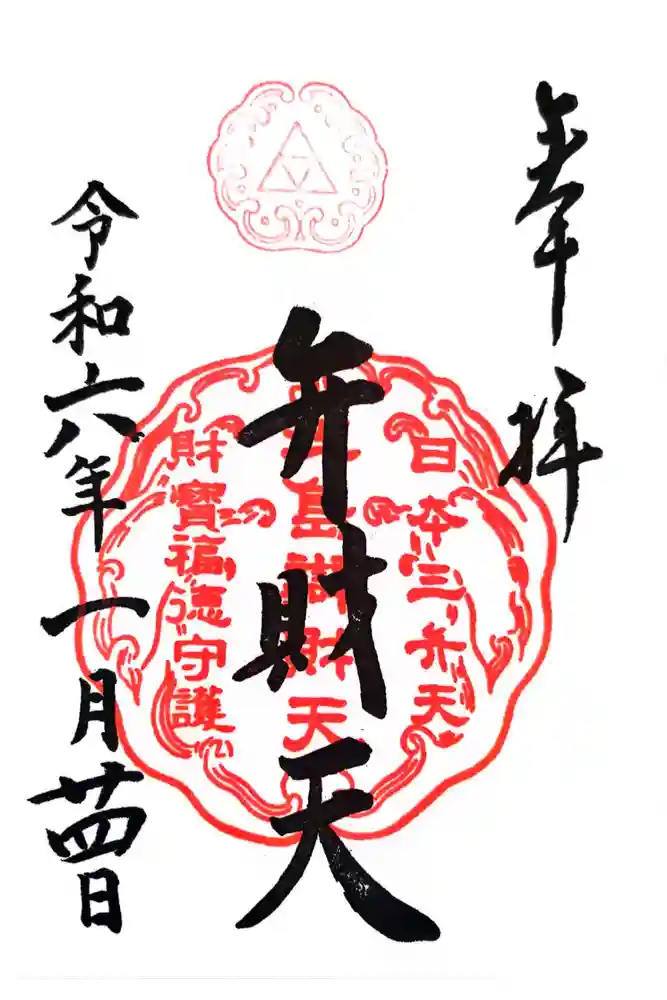 奉拝
日本三弁天
弁財天
島辨財天
財寶福徳守護
令和六年一月廿四日